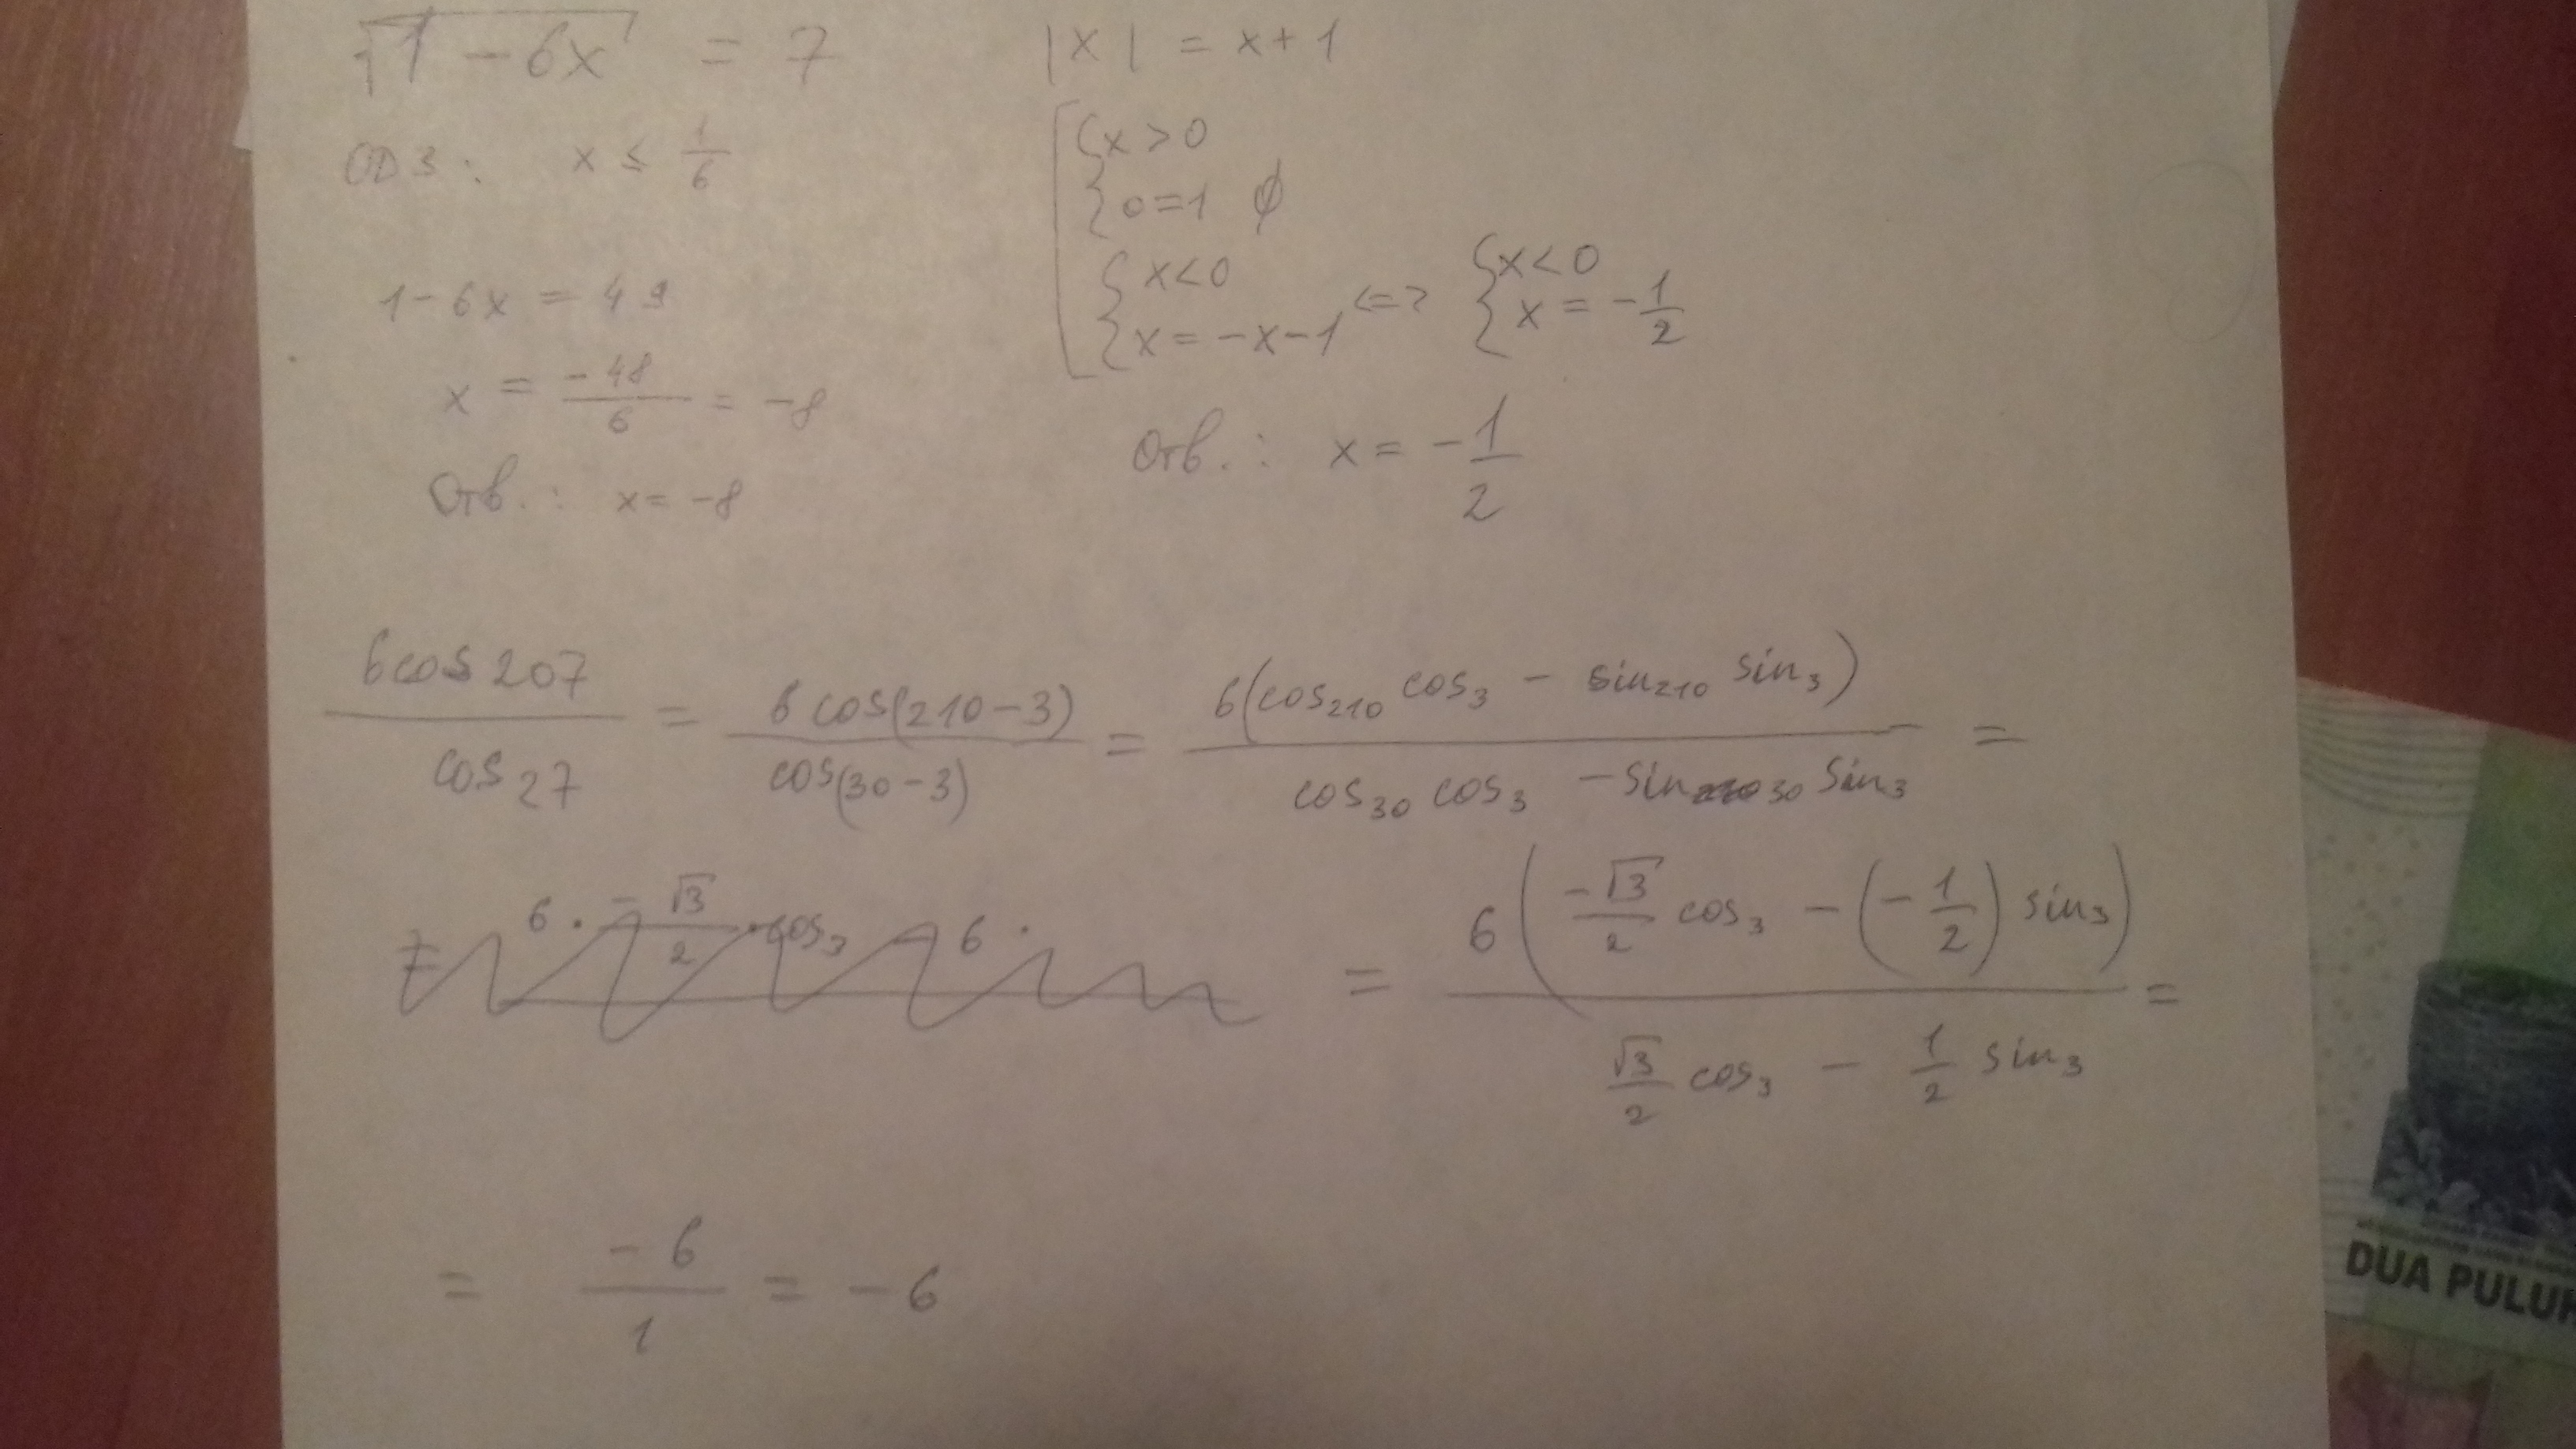 √(1 − 6x) = 7
ОДЗ: x ≤ 1/6
1 − 6x = 49
x = −48/6 = −8
Отв.: x = −8
|x| = x + 1
[ { x > 0
{ 0 = 1 ∅
{ x < 0
{ x = −x − 1 <=> { x < 0 { x = −1/2
Отв.: x = −1/2
6cos 207 / cos 27 = 6 cos(210 − 3) / cos(30 − 3) = 6(cos210 cos3 − sin210 sin3) / cos30 cos3 − sin30 sin3 =
= 6 · −√3/2 · cos3 − 6 ·
= 6(−√3/2 cos3 − (−1/2) sin3) / √3/2 cos3 − 1/2 sin3 =
= −6/1 = −6
DUA PULUH